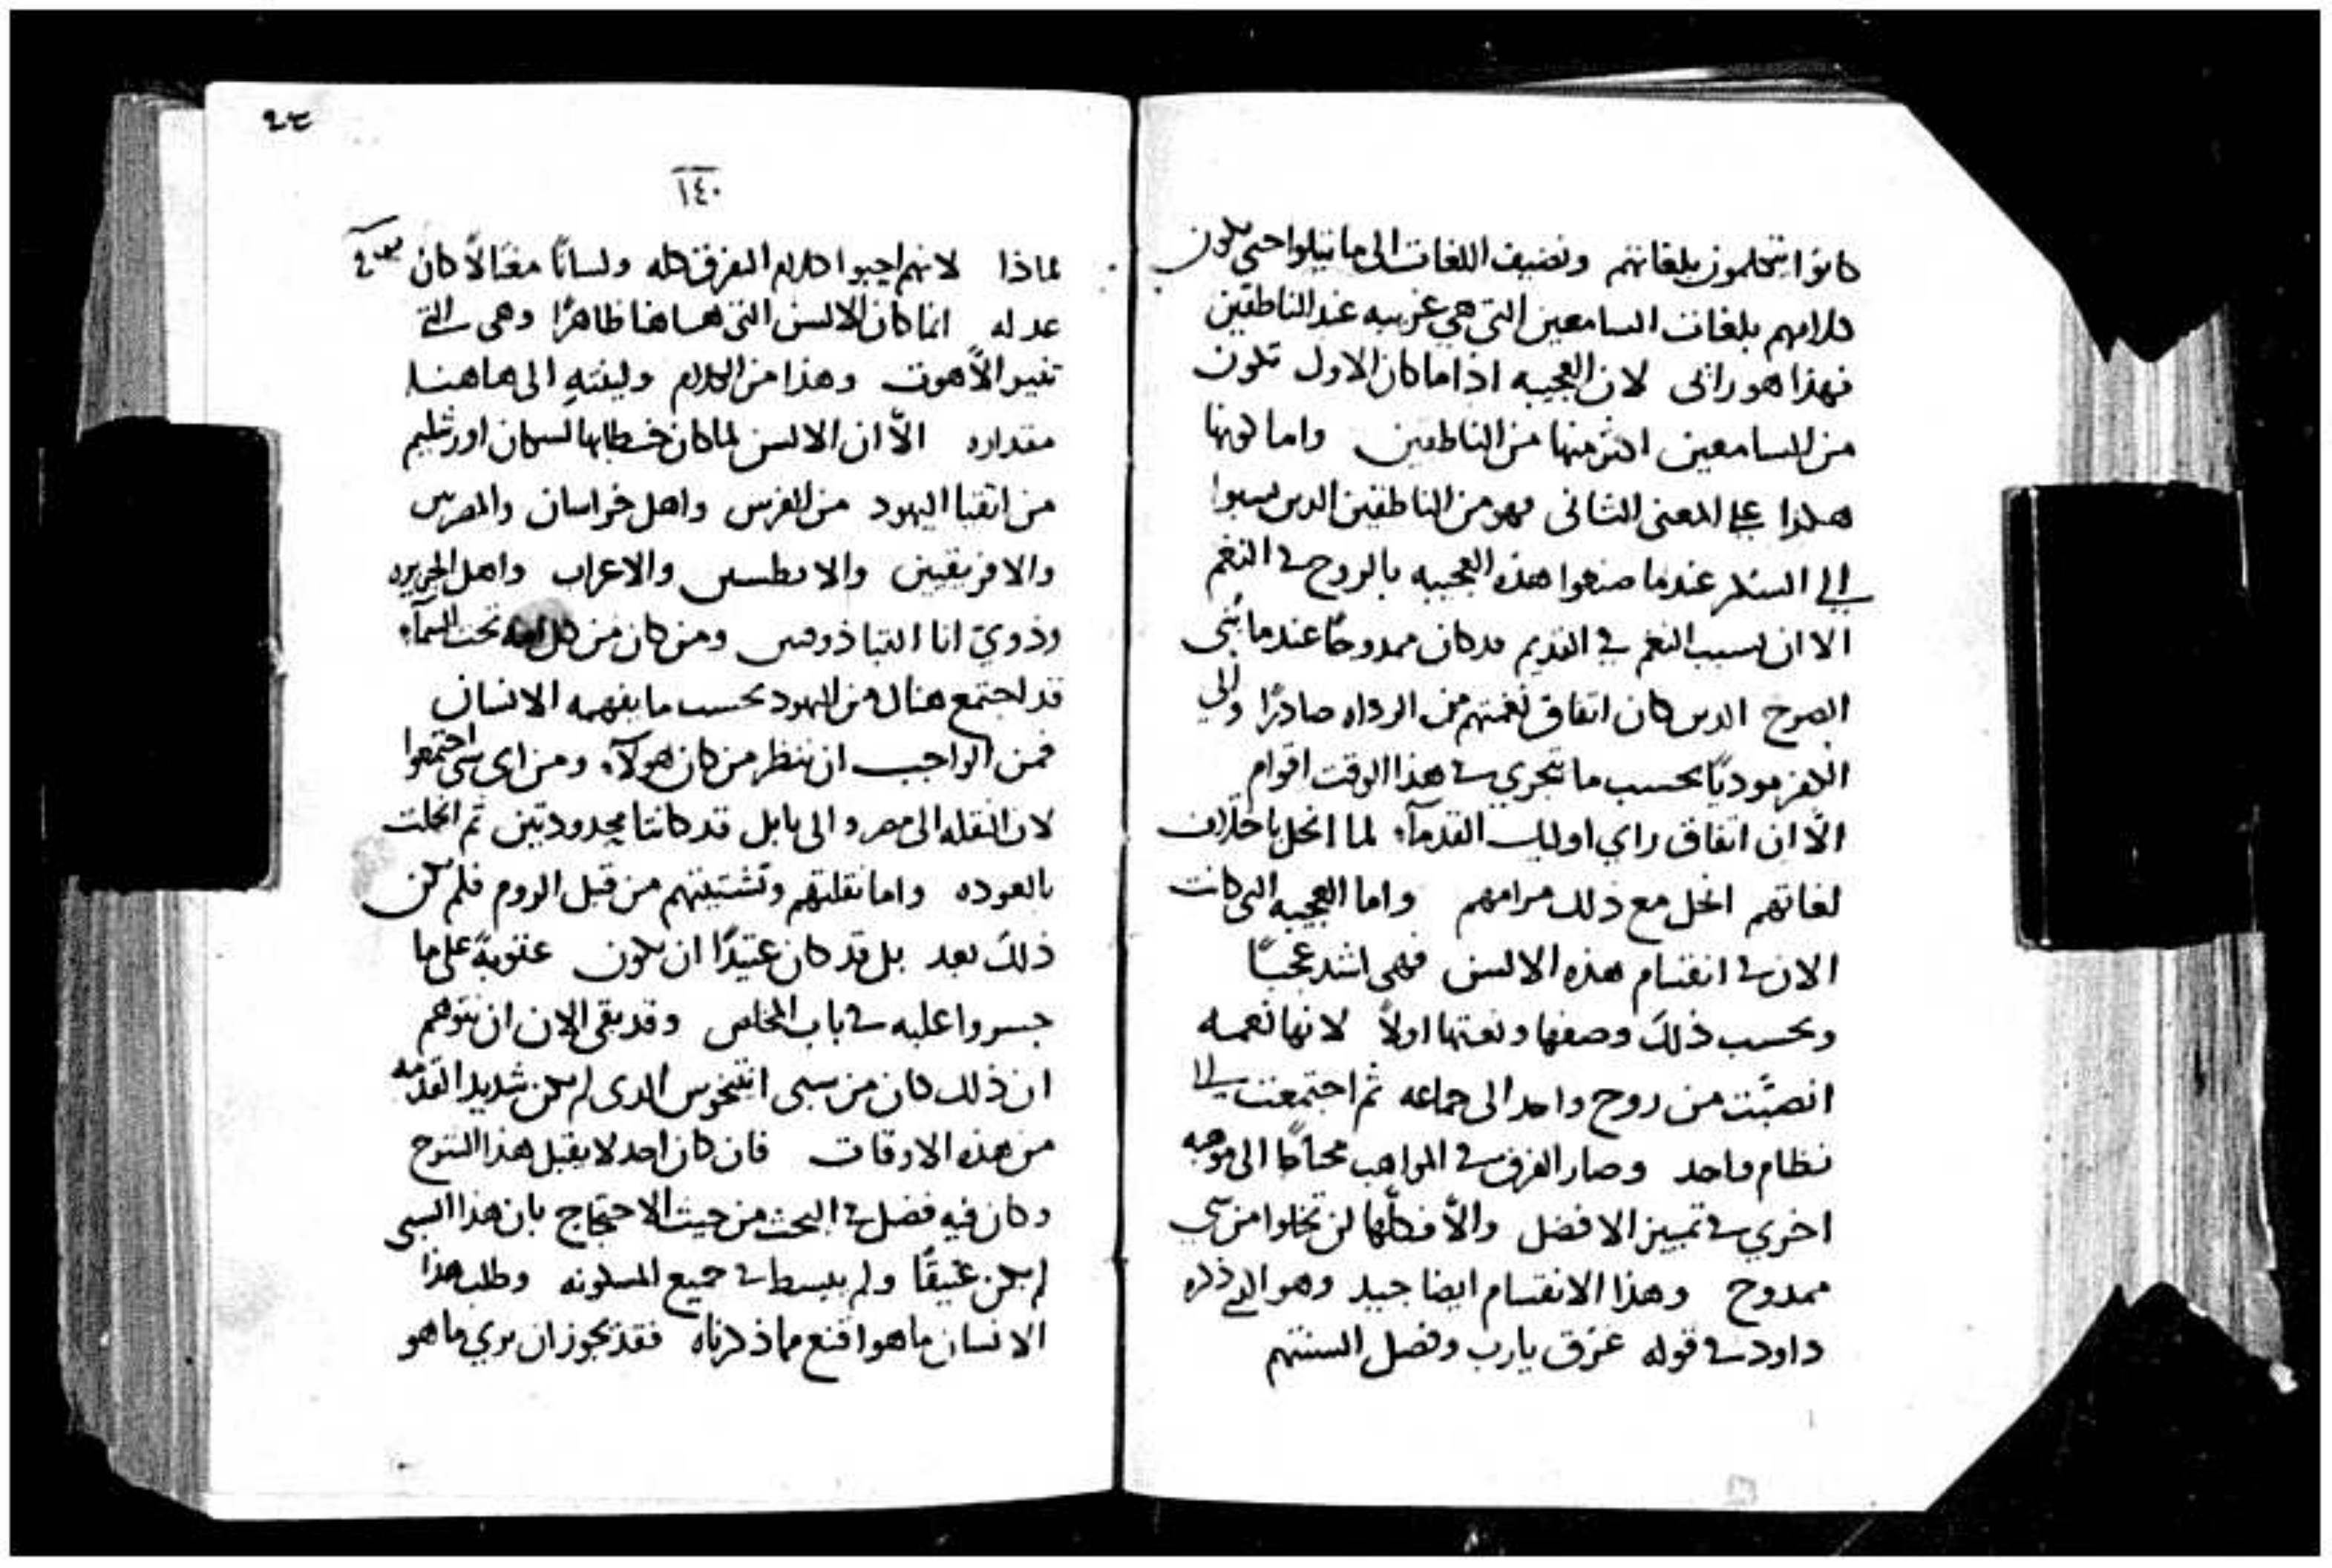 كانوا يتكلمون بلغاتهم ونضيف اللغات الى ما يتلوا حتي يكون
كلامهم بلغات السامعين التي هي غريبه عند الناطقين
فهذا هو رائى لان العجيبه اذا ما كان الاول تكون
من السامعين اكثر منها من الناطقين واما كونها
هكذا على المعنى الثاني فهو من الناطقين الدين نسبوا
الي السكر عندما صنعوا هذه العجيبه بالروح في النغم
الا ان تسبب النغم في القديم قد كان ممدوحًا عندما بُني
الصرح الدين كان اتفاق نغمتهم من الرداه صادرًا
بحسب ما تتجرى في هذا الوقت اقوام
الّا ان اتفاق راي اوليك القدمآء لما انحل باختلاف
لغاتهم انحل مع ذلك مرامهم واما العجيبه التي كانت
الان في انقسام هذه الالسن فهي اشد عجبًا
وبحسب ذلك وصفها ونعتها اولاً لانها نعمه
انصبّت من روح واحد الى جماعه ثم اجتمعت الى
نظام واحد وصار الفرق في المواهب محتاجًا الى موهبه
اخري في تمييز الافضل والّا فكلها لن تخلوا من شي
ممدوح وهذا الانقسام ايضا جيد وهو الذي ذكره
داود في قوله غرّق يارب وفصل السنتهم
٢٣
١٤٠
لماذا لانهم احبوا كلام الغرق كله ولسانًا مغتالاً كان
عدله انما كان الالسن التي هاهنا ظاهرًا وهي التي
تغير اللّاهوت وهذا من الكلام وليفته الى هاهنا
مقداره الّا ان الالسن لما كان خطابها لسكان اورشليم
من اتقيا اليهود من الفرس واهل خراسان والمصريين
والافريقيين والاعراب واهل الجزيره
وذوي انا القباذوقيين ومن كان من كل امه تحت السمآء
قد اجتمع هناك من اليهود بحسب ما يفهمه الانسان
فمن الواجب ان ننظر من كان هولآء ومن اى سبي اجتمعوا
لان النقله الى مصر والى بابل قد كانتا محدودتين ثم انحلت
بالعوده واما نقلتهم وتشتيتهم من قبل الروم فلم تكن
ذلك بعد بل قد كان عتيدًا ان يكون عقوبةً على ما
جسروا عليه في باب المخلص وقد بقى الان ان نتوهم
ان ذلك كان من سبي انتيخوس الدى لم يكن شديد القدمه
من هذه الاوقات فان كان احد لا يقبل هذا الشرح
وكان فيه فضل في البحث من حيث الاحتجاج بان هذا السبي
لم يكن عتيقًا ولم يبسط في جميع المسكونه وطلب هذا
الانسان ما هو اقنع مما ذكرناه فقد يجوز ان يري ما هو